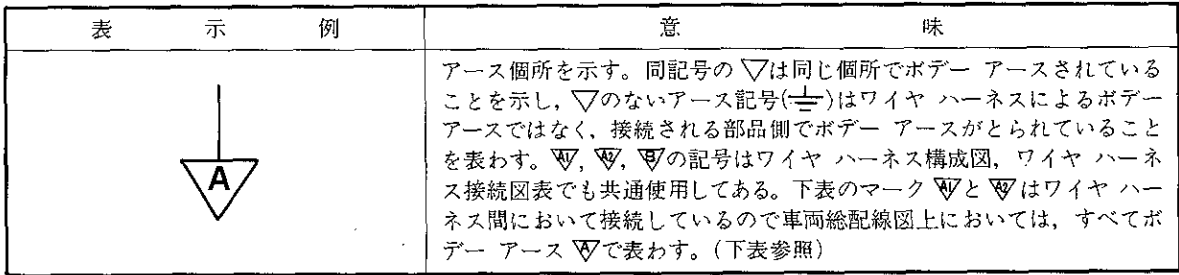 表示例
意味
アース個所を示す。同記号の▽は同じ個所でボデー アースされている
ことを示し，▽のないアース記号(⏚)はワイヤ ハーネスによるボデー
アースではなく，接続される部品側でボデー アースがとられていること
を表わす。A1，A2，B1の記号はワイヤ ハーネス構成図，ワイヤ ハーネ
ス接続図表でも共通使用してある。下表のマーク A1とA2はワイヤ ハー
ネス間において接続しているので車両総配線図上においては，すべてボ
デー アース Aで表わす。(下表参照)
A